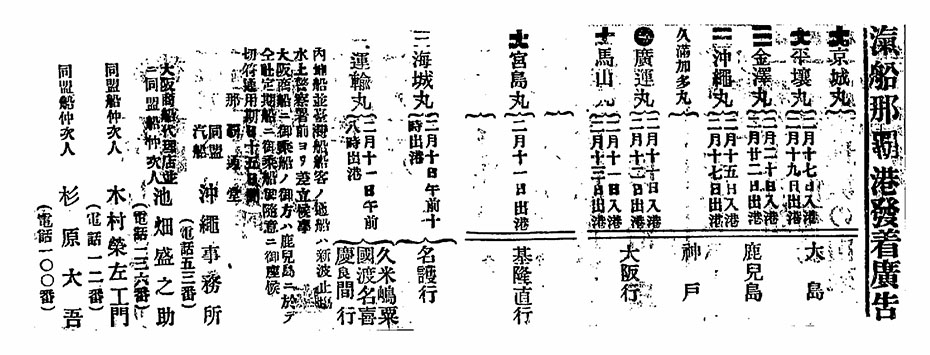 滊船那覇港發着廣告
京城丸
平壤丸
二月十七日入港
二月十九日出港
金澤丸
二月二十日入港
二月廿二日出港
沖繩丸
二月十五日入港
二月十七日出港
久滿加多丸
廣運丸
二月十二日出港
馬山丸
二月十一日入港
二月十三日出港
大島
鹿兒島
神戸
大阪行
宮島丸
二月十一日出港
基隆直行
海城丸
二月十日午前十
時出港
名護行
運輸丸
二月十一日午前
八時出港
久米嶋粟
國渡名喜
慶良間行
水上警察署前ヨリ差立候事
大阪商船ニ御乘船ノ御方ハ鹿兒島ニ於テ
仝社定期船ニ御乘船御隨意ニ御座候
那覇通堂
同盟
汽船
沖繩事務所
(電話五三番)
大阪商船代理店並
ニ同盟船仲次人
池畑盛之助
(電話一三六番)
同盟船仲次人
木村榮左工門
(電話一二番)
同盟船仲次人
杉原大吾
(電話一〇〇番)